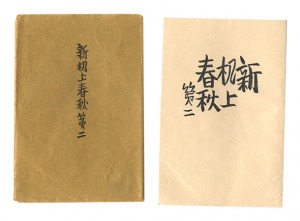 新机上春秋第二
新
机上
春秋
第二